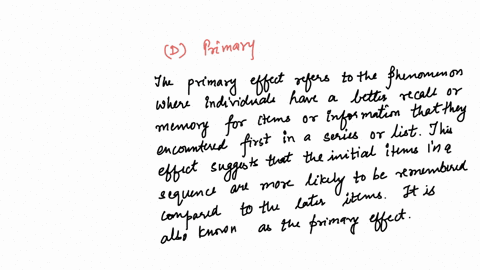 (D) Primary
The primary effect refers to the phenomenon
where individuals have a better recall or
memory for items or information that they
encountered first in a series or list. This
effect suggests that the initial items in a
sequence are more likely to be remembered
compared to the later items. It is
also known as the primary effect.